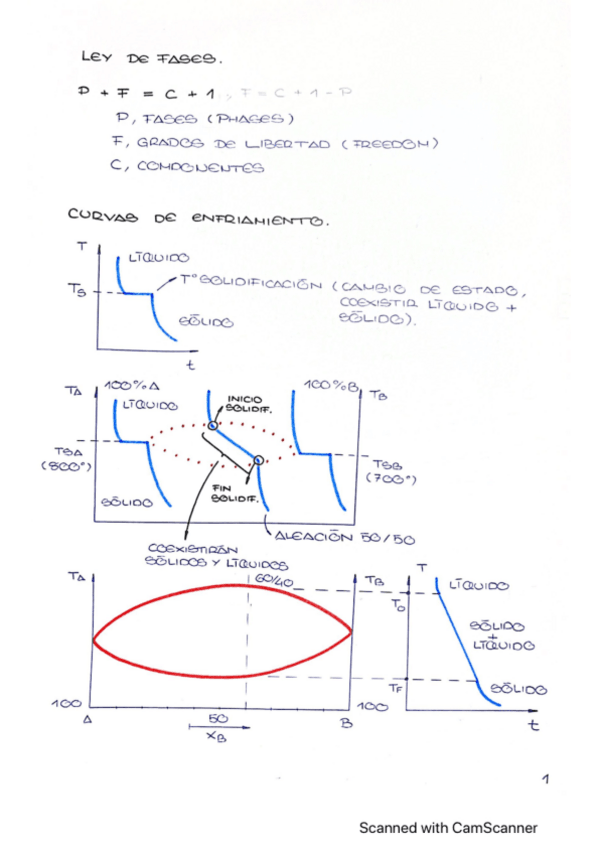 LEY DE FASES.
P + F = C + 1 ; F = C + 1 - P
P, FASES (PHASES)
F, GRADOS DE LIBERTAD (FREEDOM)
C, COMPONENTES
CURVAS DE ENFRIAMIENTO.
T
LÍQUIDO
TS
Tº SOLIDIFICACIÓN (CAMBIO DE ESTADO,
COEXISTIR LÍQUIDO +
SÓLIDO).
SÓLIDO
t
TA
100% A
100% B
TB
LÍQUIDO
INICIO
SOLIDIF.
TSA
(800º)
TSB
(700º)
FIN
SOLIDIF.
SÓLIDO
ALEACIÓN 50/50
COEXISTIRÁN
SÓLIDOS Y LÍQUIDOS
TA
60/40
TB
T
LÍQUIDO
TO
SÓLIDO
+
LÍQUIDO
TF
SÓLIDO
100
100
A
50
B
t
XB
1
Scanned with CamScanner